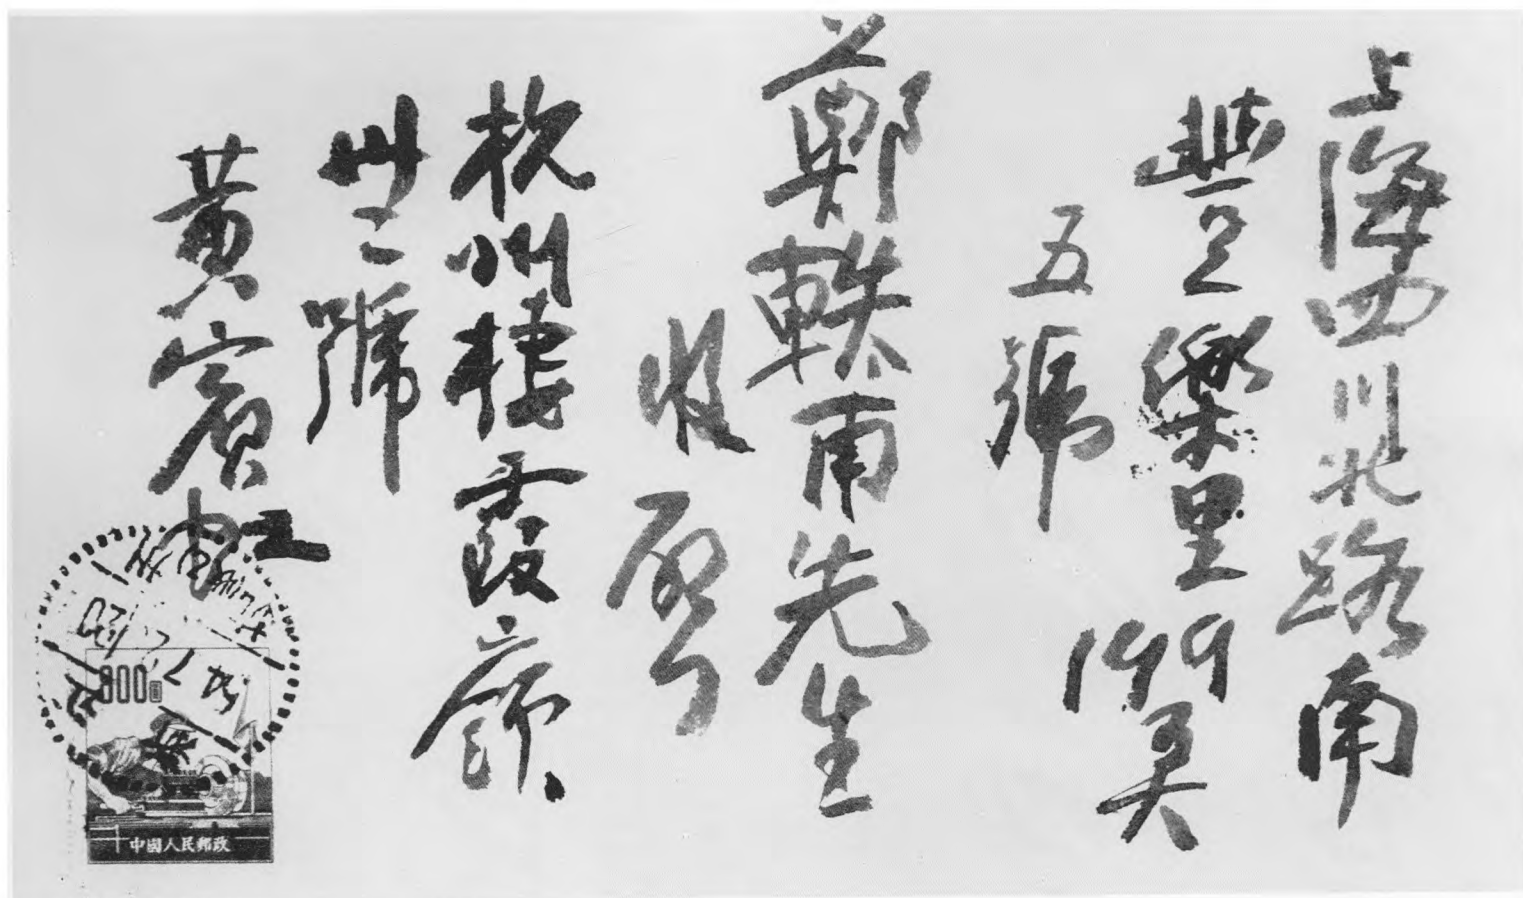 上海四川北路南
豐樂里199弄
五號
鄭軼甫先生
收啓
杭州棲霞嶺
卅二號
黃賓虹
800圓
中國人民郵政